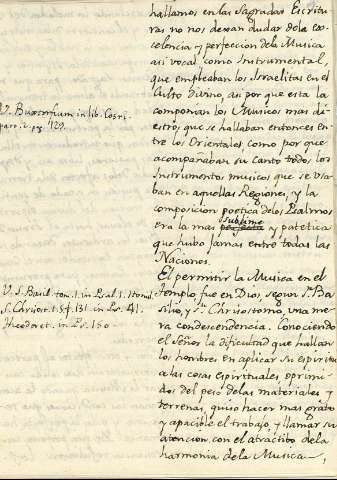 hallamos en las Sagradas Escritu
ras no nos dexan dudar dela ex-
celencia y perfeccion dela Musica
asi vocal como Instrumental,
que empleaban los Israelitas en el
Culto divino, asi por que esta la
componian los Musicos mas di-
estros que se hallaban entonces en-
tre los Orientales, como por que
acompañaban su canto todos los
Instrumentos musicos que se usa-
ban en aquellas Regiones, y la
composicion poetica delos Psalmos
era la mas perfecta sublime y patetica
que hubo jamas entre todas las
Naciones.
El permitir la Musica en el
templo, fue en Dios, segun Sn. Ba-
silio, y Sn. Chrisostomo, una me-
ra condescendencia. Conociendo
el Señor la dificultad que hallan
los hombres en aplicar su espiritu
a las cosas espirituales oprimi-
dos del peso delas materiales y
terrenas, quiso hacer mas grato
y apacible el trabajo, y llamar su
atencion con el atractibo dela
harmonia dela Musica
V. Buxtorfium in lib. Cosri
par. 2. pg 129.
V. S. Basil. tom. 1. in Psal. 1.
S. Chrisost. in Ps. 41.
Theodoret. in Ps. 150